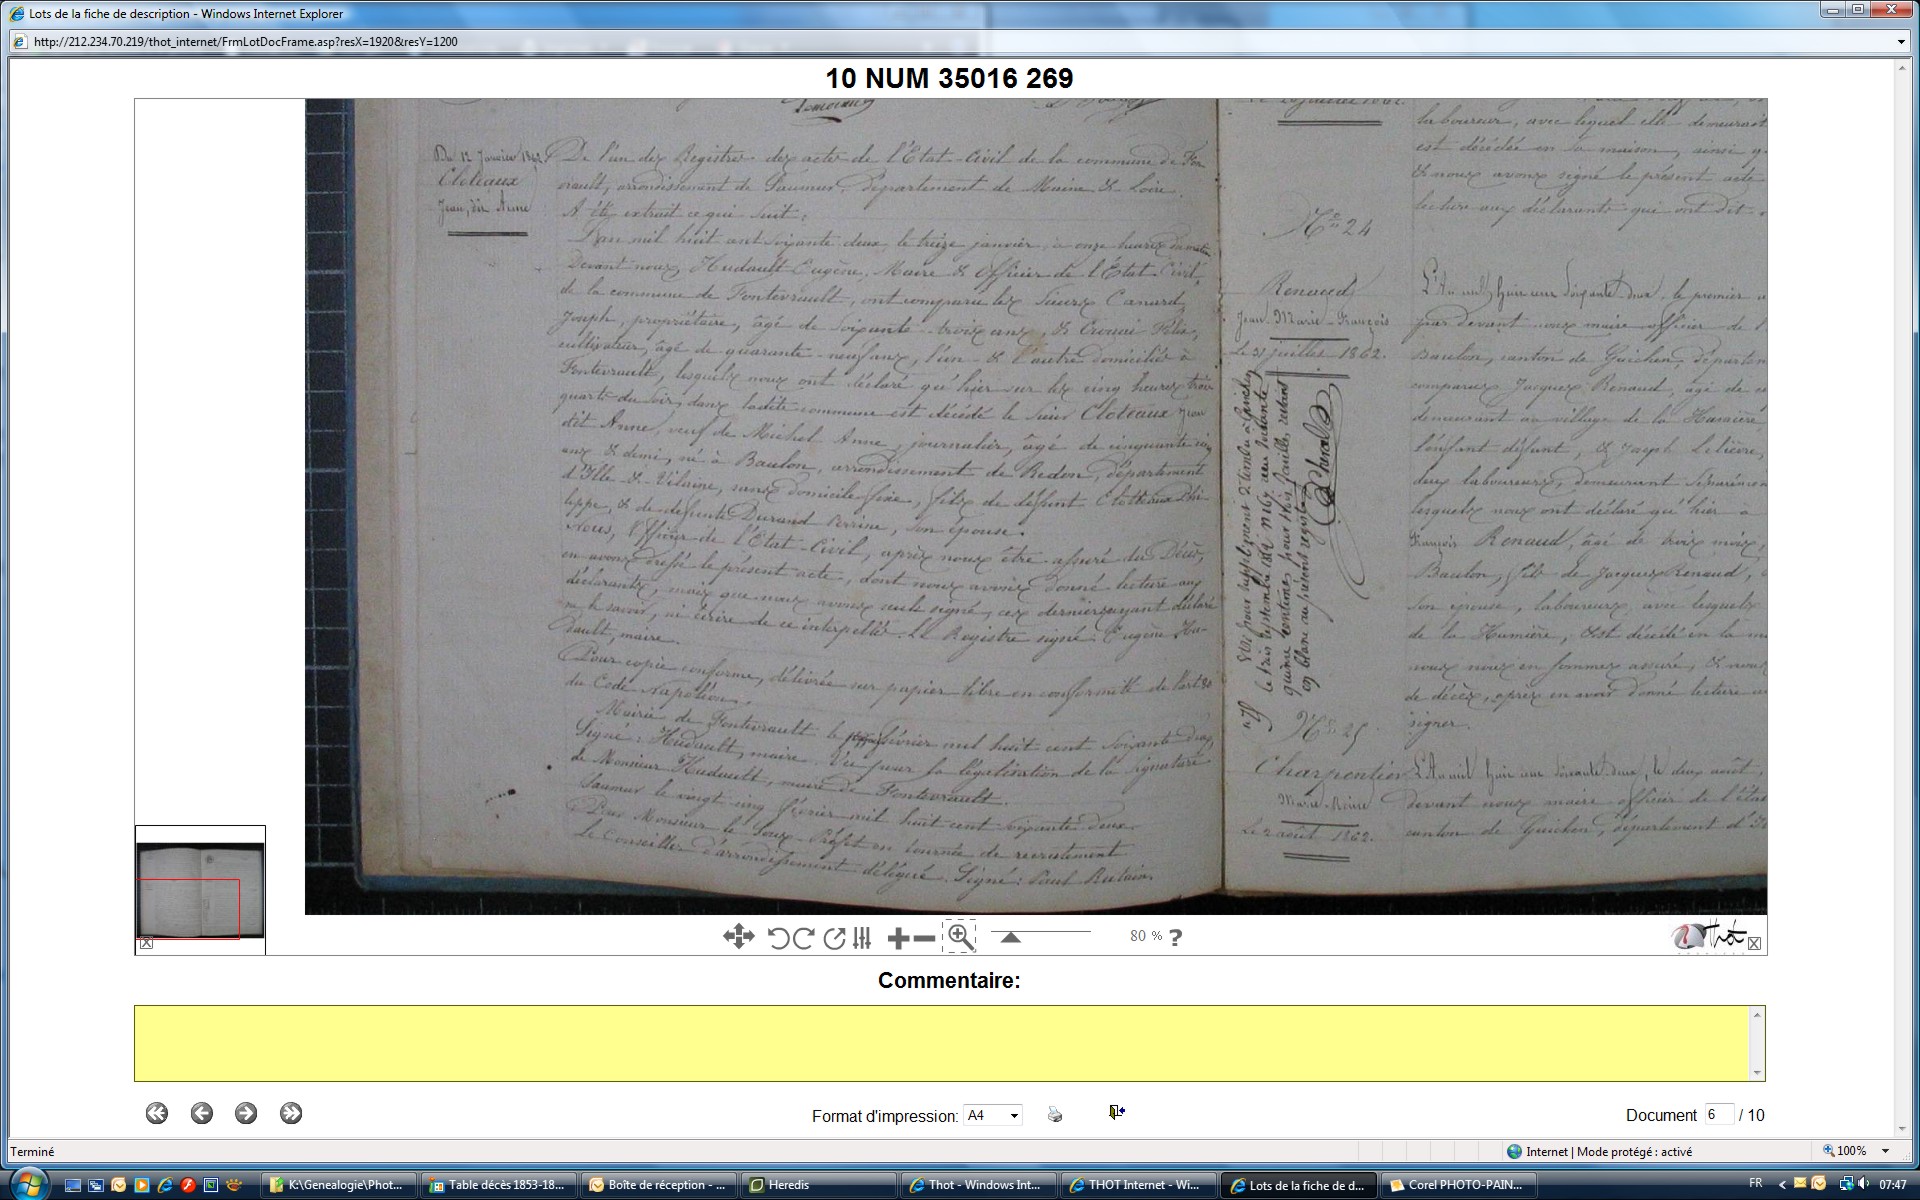 Lots de la fiche de description - Windows Internet Explorer
http://212.234.70.219/thot_internet/FrmLotDocFrame.asp?resX=1920&resY=1200
10 NUM 35016 269
Du 12 Janvier 1862
Cloteaux
Jean, dit Anne
De l'un des Registres des actes de l'Etat-Civil de la commune de Fon
vrault, arrondissement de Saumur, Département de Maine & Loire
A été extrait ce qui suit:
L'an mil huit cent soixante deux le treize janvier, à onze heures du matin
Devant nous, Hudault Eugène, Maire & Officier de l'Etat-Civil
de la commune de Fontevrault, ont comparu les sieurs Canard
Joseph, propriétaire, âgé de soixante-trois ans, & Félix,
cultivateur, âgé de quarante-neuf ans, l'un & l'autre domiciliés à
Fontevrault, lesquels nous ont déclaré qu'hier sur les cinq heures trois
quarts du soir, dans ladite commune est décédé le sieur Cloteaux Jean
dit Anne, veuf de Michel Anne, journalier, âgé de cinquante cinq
ans & demi, né à Baulon, arrondissement de Redon, département
d'Ille-&-Vilaine, sans domicile fixe, fils de défunt Clotteaux Phi-
lippe, & de défunte Durand Perrine, son épouse.
Nous, Officier de l'Etat-Civil, après nous être assuré du Décès,
en avons dressé le présent acte, dont nous avons donné lecture aux
déclarants, mais que nous avons seuls signé, ces derniers ayant déclaré
ne le savoir, ni écrire de ce interpellés. Le Registre signé: Eugène Hu-
dault, maire.
Pour copie conforme, délivrée sur papier libre en conformité de l'art 80
du Code Napoléon.
Mairie de Fontevrault le février mil huit cent soixante deux
Signé: Hudault, maire. Vu pour la légalisation de la signature
de Monsieur Hudault, maire de Fontevrault.
Saumur le vingt cinq février mil huit cent soixante deux
Pour Monsieur le Sous-Préfet en tournée de recrutement
Le Conseiller d'arrondissement délégué. Signé: Paul
laboureur, avec lequel elle demeurait
est décédée en sa maison, ainsi q
& nous avons signé le présent acte
lecture aux déclarants qui ont dit
Nº 24
Renaud
Jean-Marie-François
Le 31 juillet 1862.
L'An mil huit cent soixante-deux, le premier
par devant nous maire officier de l'
Baulon, canton de Guichen, départem
comparus Jacques Renaud, âgé de
demeurant au village de la Hamière
l'enfant défunt, & Joseph Lelièvre,
deux laboureurs, demeurant séparément
lesquels nous ont déclaré qu'hier à
François Renaud, âgé de trois mois,
Baulon, fils de Jacques Renaud,
son épouse, laboureurs avec lesquels
de la Hamière, est décédé en la m
nous nous en sommes assuré, & nous
de décès, après en avoir donné lecture
signer.
Nº 25
Charpentier
Marie-Reine
Le 2 août 1862.
L'An mil huit cent soixante-deux, le deux août,
devant nous maire officier de l'état
canton de Guichen, département d'I
80 % ?
Thot
Commentaire:
Format d'impression: A4
Document 6 / 10
Terminé
Internet | Mode protégé : activé
100%
K:\Genealogie\Phot...
Table décès 1853-18...
Boîte de réception - ...
Heredis
Thot - Windows Int...
THOT Internet - Wi...
Lots de la fiche de d...
Corel PHOTO-PAIN...
FR
07:47